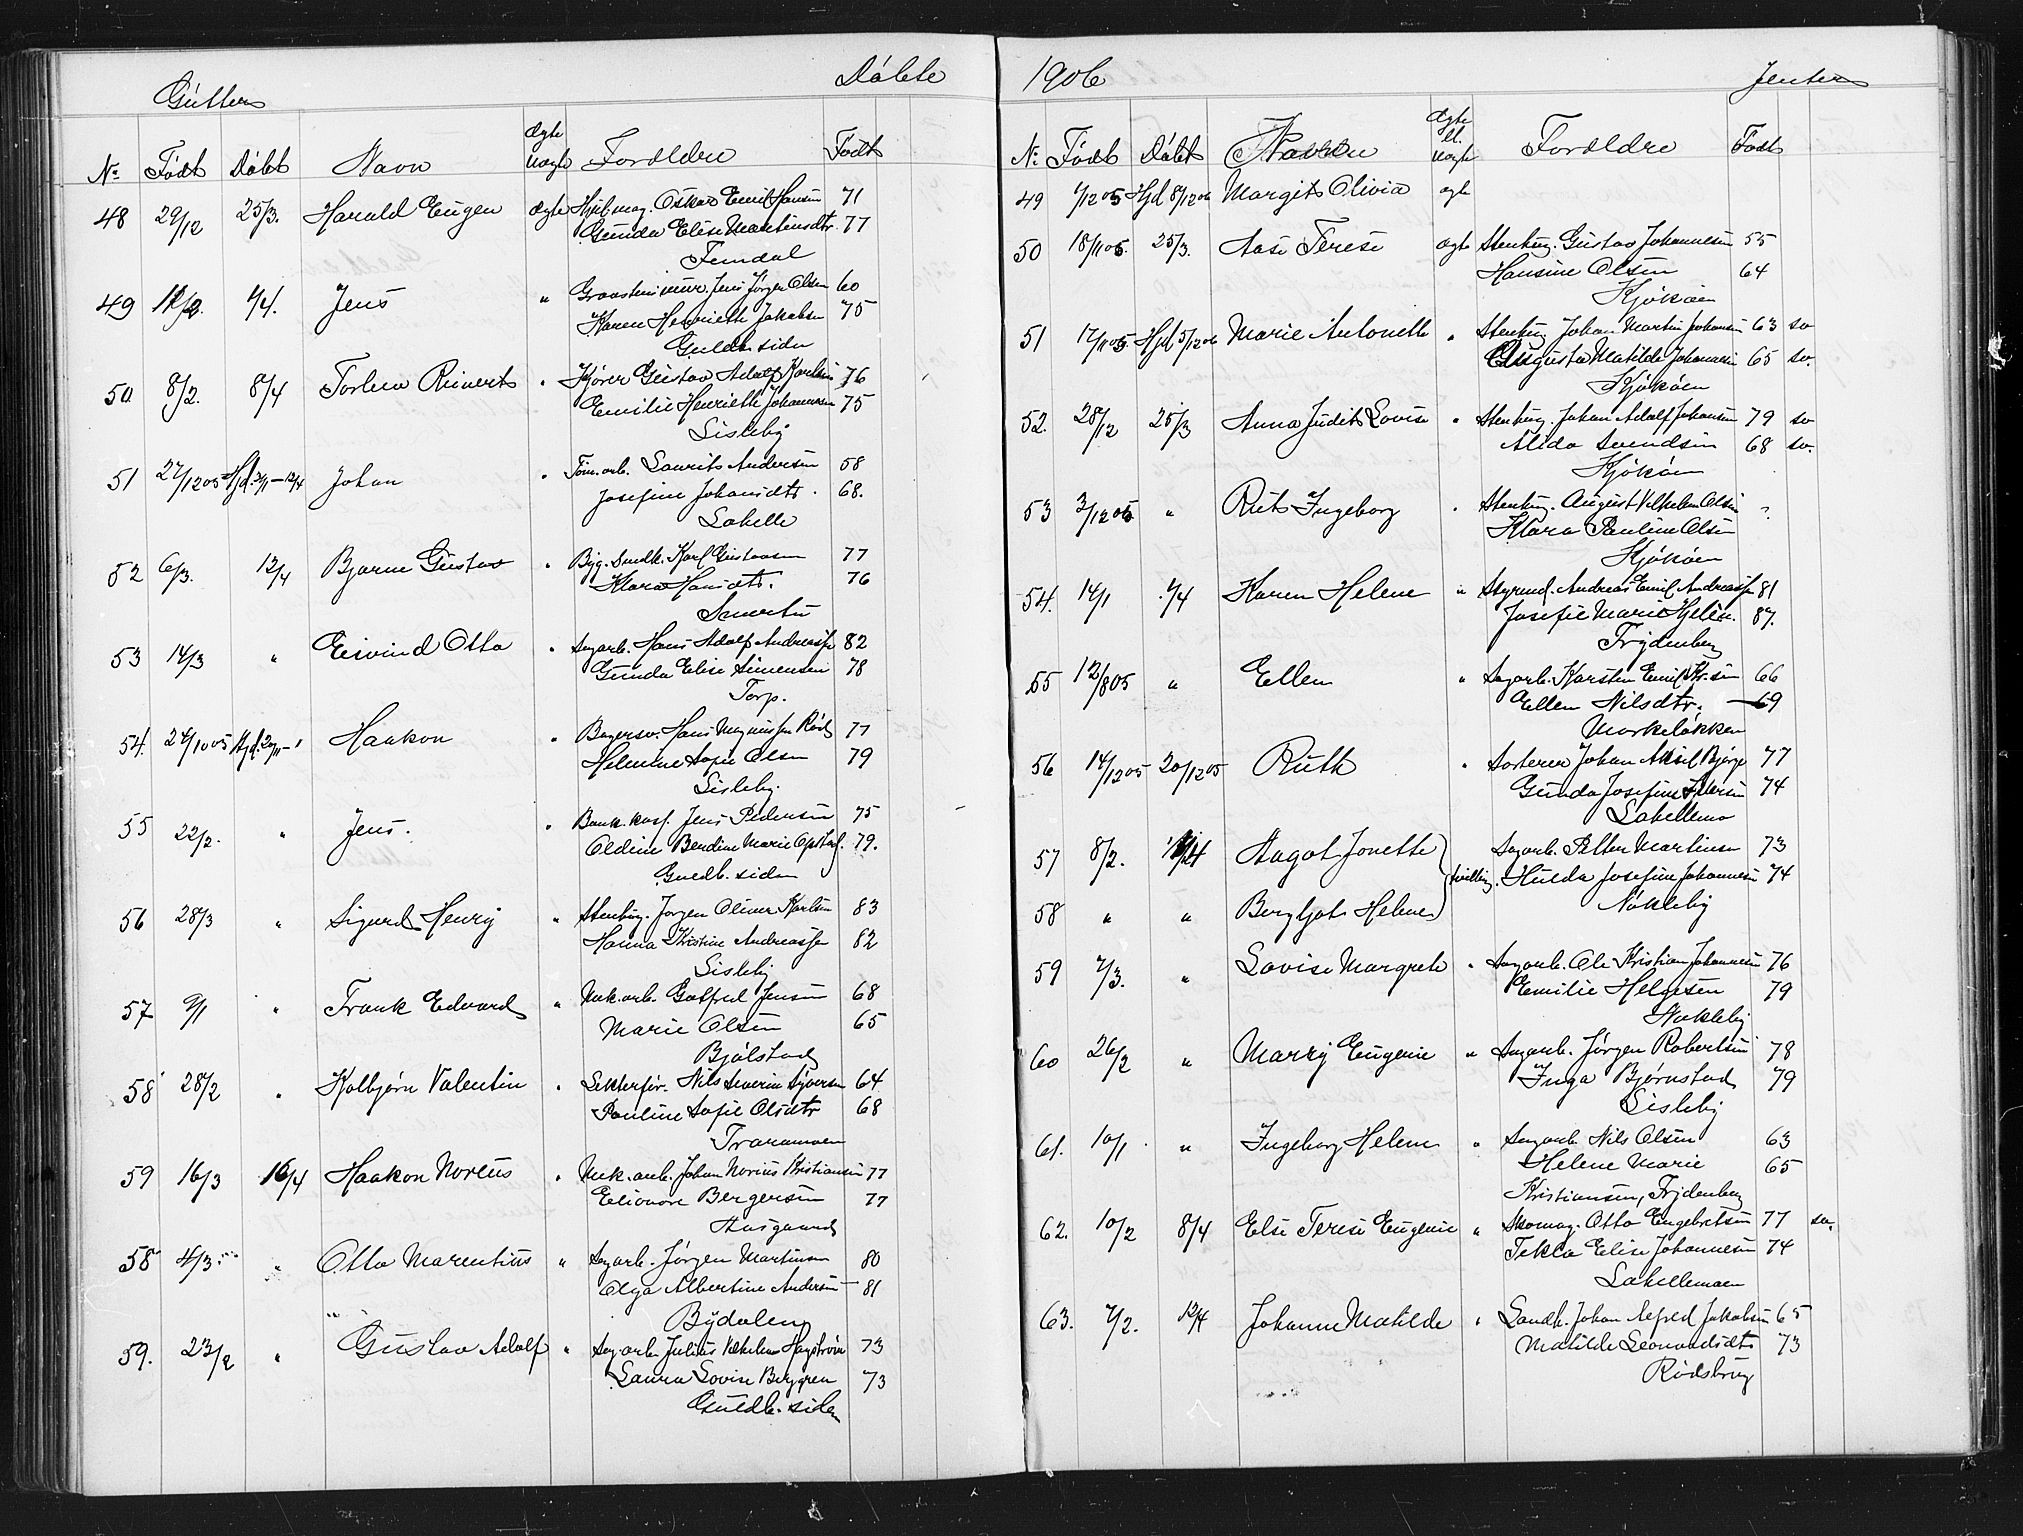 Gutter Døbte
No Født Døbt Navn ægte uægte Forældre Født
48 29/12 25/3. Harald Eugen ægte Hjulmag. Oskar Emil Hansen 71
Gunda Elise Martinsdtr. 77
Femdal
49 1/4. Jens " Graastensmur. Jens Jørgen Olsen 60
Karen Henriette Jakobsen 75
Guldb. siden
50 8/2. 8/4 Torleiv Reinert " Kjører Gustav Adolf Karlsen 76
Emilie Henriette Johannesen 75
Lisleby
51 27/12 05 Johan " Tøm.arb. Laurits Andersen 58
Josefine Johansdtr. 68.
Lahelle
52 6/3. 12/4 Bjarne Gustav " Byg. Snedk. Karl Gustavsen 77
Klara Hansdtr. 76
Smertu
53 14/3 " Eivind Otto " Sagarb. Hans Adolf Andreassen 82
Gunda Elise Simensen 78
Torp.
54. 24/10 05 Hjd. Haakon " Bagersv. Hans Magnussen Rød 77
Helmine Sofie Olsen 79
Lisleby.
55 22/2. " Jens. " Bank.kass. Jens Pedersen 75
Oldine Bendine Marie Opstad. 79.
Guldb. siden
56 28/3 " Sigurd Henry " Stenhug. Jørgen Oliver Karlsen 83
Hanna Kristine Andreassen 82
Lisleby
57 9/1 " Frank Edvard " Mek.arb. Gotfred Jensen 68
Marie Olsen 65
Bjølstad
58 28/2 " Kolbjørn Valentin " Lekterfør. Nils Severin Syversen 64
Pauline Sofie Olsdtr 68
Traramoen
59 16/3 16/4 Haakon Norius " Mek.arb. Johan Norius Kristiansen 77
Elionore Bergersen 77
Aasgaard
58 4/3 " Otto Marentius " Sagarb. Jørgen Martinsen 80
Olga Albertine Andersen 81
Bydalen
59. 23/2 " Gustav Adolf " Sagarb. Julius Vilhelm Hagstrøm 73
Laura Lovise Berggren 73
Guldb. siden
1906 Jenter
No Født Døbt Navn ægte el. uægte Forældre Født
49 1/12 05 Hjd 8/12 06 Margit Olivia ægte
50 18/11 05. 25/3. Aase Terese ægte Stenhug. Gustav Johannesen 55
Hansine Olsen 64
Kjøkøen
51 17/11 05 Hjd 5/12 06 Marie Antonette " Stenhug. Johan Martin Johansen 63 sv
Augusta Matilde Johannesen 65 sv.
Kjøkøen
52. 28/12 25/3 Anna Judit Lovise " Stenhug. Johan Adolf Johansen 79 sv
Alida Svendsen 68 sv.
Kjøkøen
53 3/12 05 " Rut Ingeborg " Stenhug. August Vilhelm Olsen ?
Klara Pauline Olsen
Kjøkøen
54. 14/1 1/4 Karen Helene " Styrmd. Andreas Emil Andreassen 81
Josefie Marie Hjelen. 87.
Frydenberg
55 12/8 05 " Ellen " Sagarb. Karsten Emil Kr.sen 66
Ellen Nilsdtr. 69
Mørkeløkken
56 14/12 05 20/12 05 Ruth " Sorterer Johan Aksel Bjørge 77
Gunda Josefine Iversen 74
Lahellemo
57 8/2. Aagot Jonette Sagarb. Petter Martinsen 73
tvilling. Hulda Josefine Johannesen 74
58 " " Bergljot Helene Nøkleby
59 7/3. " Lovise Margrete " Sagarb. Ole Kristian Johannesen 76
Emilie Helgesen 79
Nøkleby
60 26/2 " Marry Eugenie " Sagarb. Jørgen Robertsen 78
Inga Bjørnstad 79
Lisleby
61. 10/1 " Ingeborg Helene " Sagarb. Nils Olsen 63
Helene Marie 65
Kristiansen, Frydenberg
62. 10/2 8/4 Else Terese Eugenie " Skomag. Otto Engebretsen 77 sv.
Tekla Elise Johannesen 74
Lahellemoen
63. 7/2. 12/4 Johanne Matilde " Landh. Johan Alfred Jakobsen 65
Matilde Leonardsdtr 73
Rødsbrug